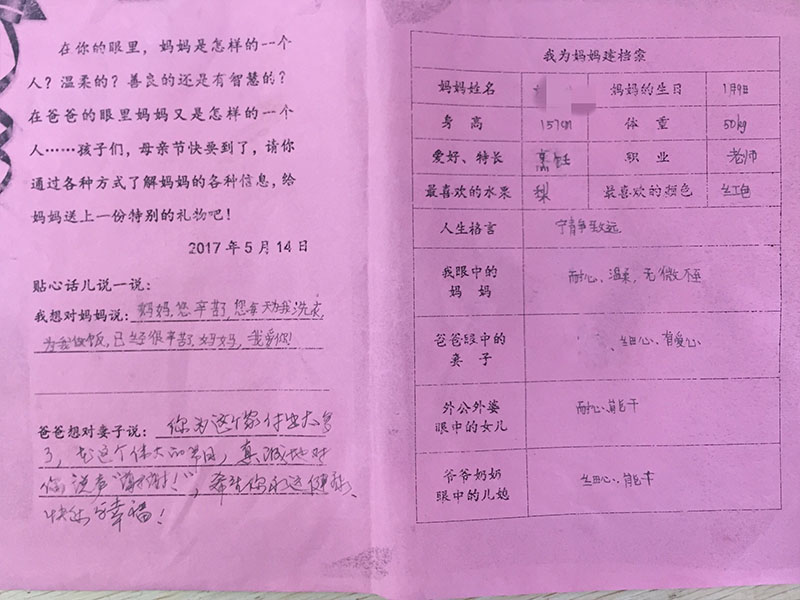 在你的眼里，妈妈是怎样的一个
人？温柔的？善良的还是有智慧的？
在爸爸的眼里妈妈又是怎样的一个
人……孩子们，母亲节快要到了，请你
通过各种方式了解妈妈的各种信息，给
妈妈送上一份特别的礼物吧！
2017年5月14日
贴心话儿说一说：
我想对妈妈说：妈妈，您辛苦了，您每天为我洗衣，
为我做饭，已经很辛苦了，妈妈，我爱你！
爸爸想对妻子说：你为这个家付出太多
了，在这个伟大的节日，真诚地对
你说声“谢谢！”，希望你永远健康、
快乐幸福！
我为妈妈建档案
妈妈姓名 妈妈的生日 1月9日
身 高 157cm 体 重 50kg
爱好、特长 烹饪 职 业 老师
最喜欢的水果 梨 最喜欢的颜色 红色
人生格言 宁静致远
我眼中的
妈 妈
耐心、温柔，无微不至
爸爸眼中的
妻 子
细心、有爱心
外公外婆
眼中的女儿
耐心、能干
爷爷奶奶
眼中的儿媳
细心、能干